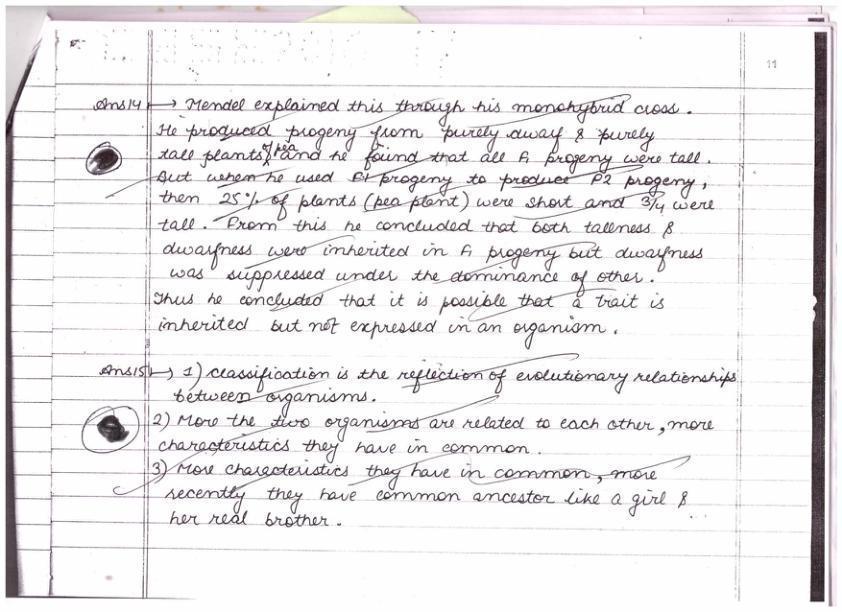 11
Ans14 → Mendel explained this through his monohybrid cross.
He produced progeny from purely dwarf & purely
tall plants of pea and he found that all F1 progeny were tall.
But when he used F1 progeny to produce F2 progeny,
then 25% of plants (pea plant) were short and 3/4 were
tall. From this he concluded that both tallness &
dwarfness were inherited in F1 progeny but dwarfness
was suppressed under the dominance of other.
Thus he concluded that it is possible that a trait is
inherited but not expressed in an organism.
Ans15 → 1) Classification is the reflection of evolutionary relationships
between organisms.
2) More the two organisms are related to each other, more
characteristics they have in common.
3) More characteristics they have in common, more
recently they have common ancestor like a girl &
her real brother.